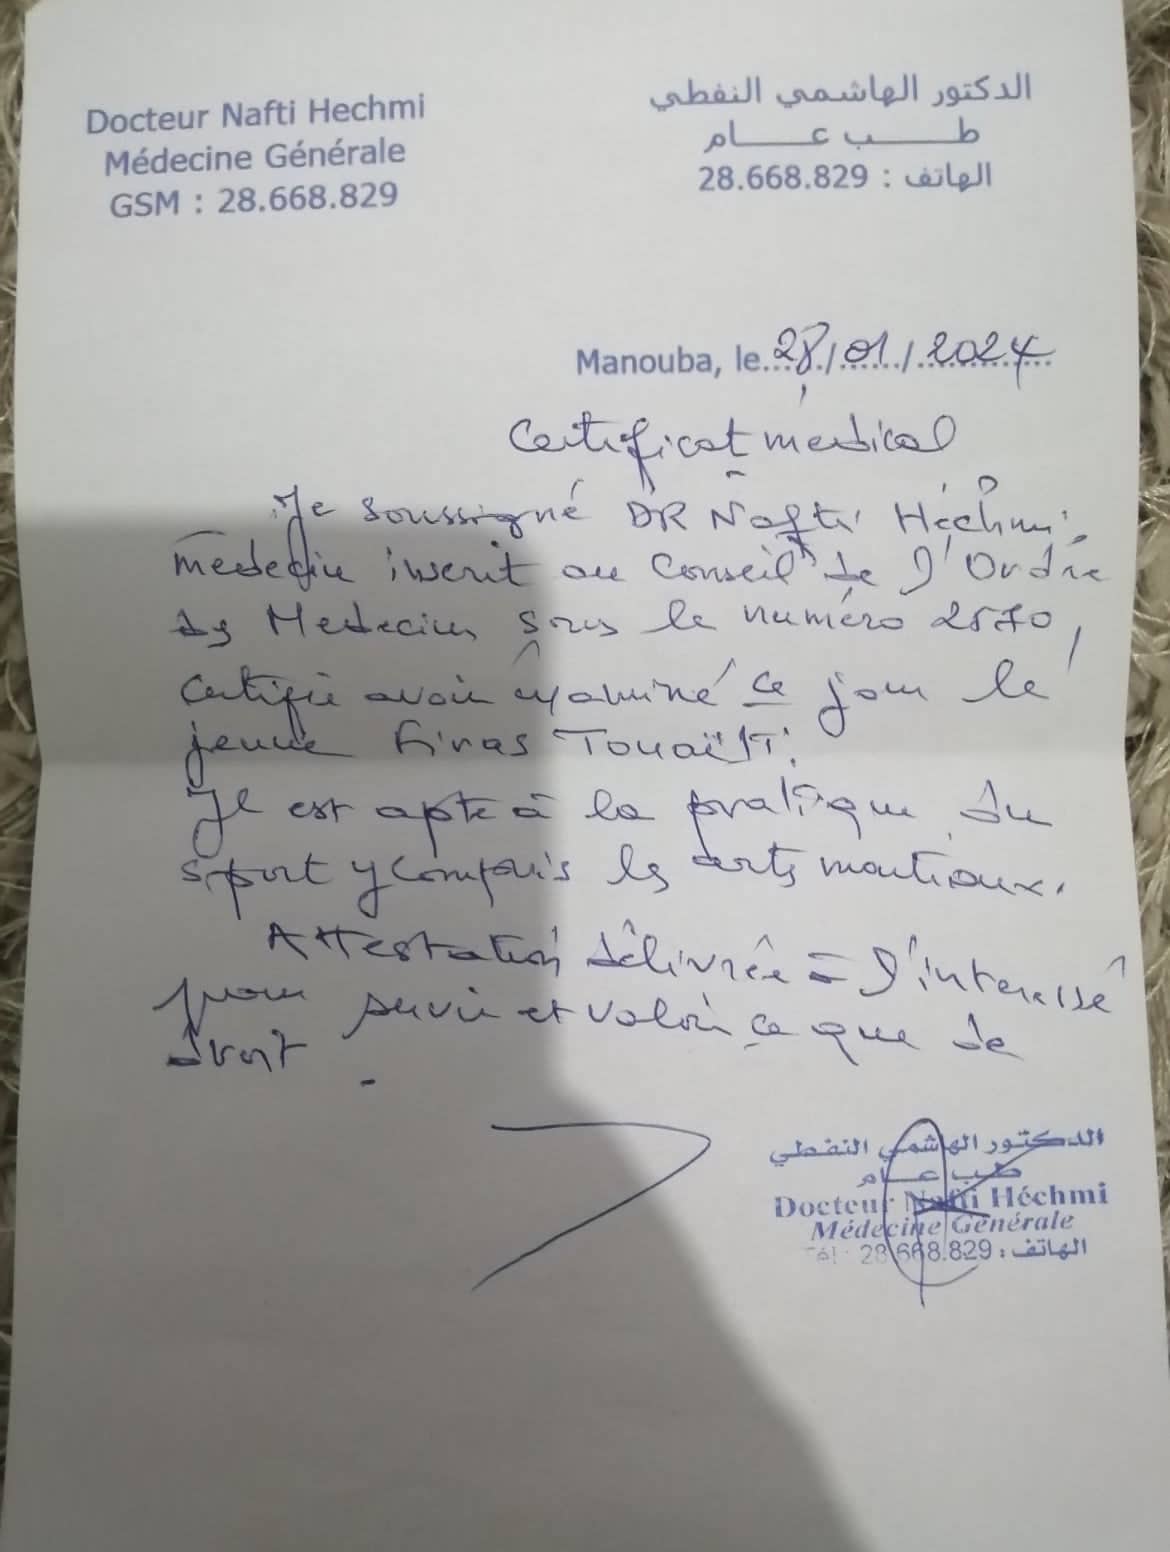 Docteur Nafti Hechmi
Médecine Générale
GSM : 28.668.829
الدكتور الهاشمي النفطي
طب عام
الهاتف : 28.668.829
Manouba, le 28/01/2024
Certificat médical
Je soussigné DR Nafti Héchmi,
médecin inscrit au Conseil de l'Ordre
des Médecins sous le numéro 2570,
certifie avoir examiné ce jour le
jeune Firas Touaïti.
Il est apte à la pratique du
sport y compris les arts martiaux.
Attestation délivrée à l'intéressé
pour servir et valoir ce que de
droit.
الدكتور الهاشمي النفطي
طب عام
Docteur Nafti Héchmi
Médecine Générale
Tél : 28.668.829 : الهاتف